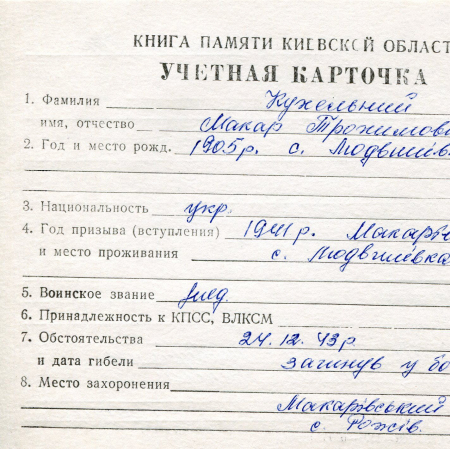 КНИГА ПАМЯТИ КИЕВСКОЙ ОБЛАСТ
УЧЕТНАЯ КАРТОЧКА
1. Фамилия Кухельний
имя, отчество Макар Трохимови
2. Год и место рожд. 1905р. с. Людвинів
3. Национальность укр.
4. Год призыва (вступления) 1941 р. Макарів
и место проживания с. Людвинівка
5. Воинское звание
6. Принадлежность к КПСС, ВЛКСМ
7. Обстоятельства 24.12.43р
и дата гибели загинув у бо
8. Место захоронения
Макарівський
с. Рожів.